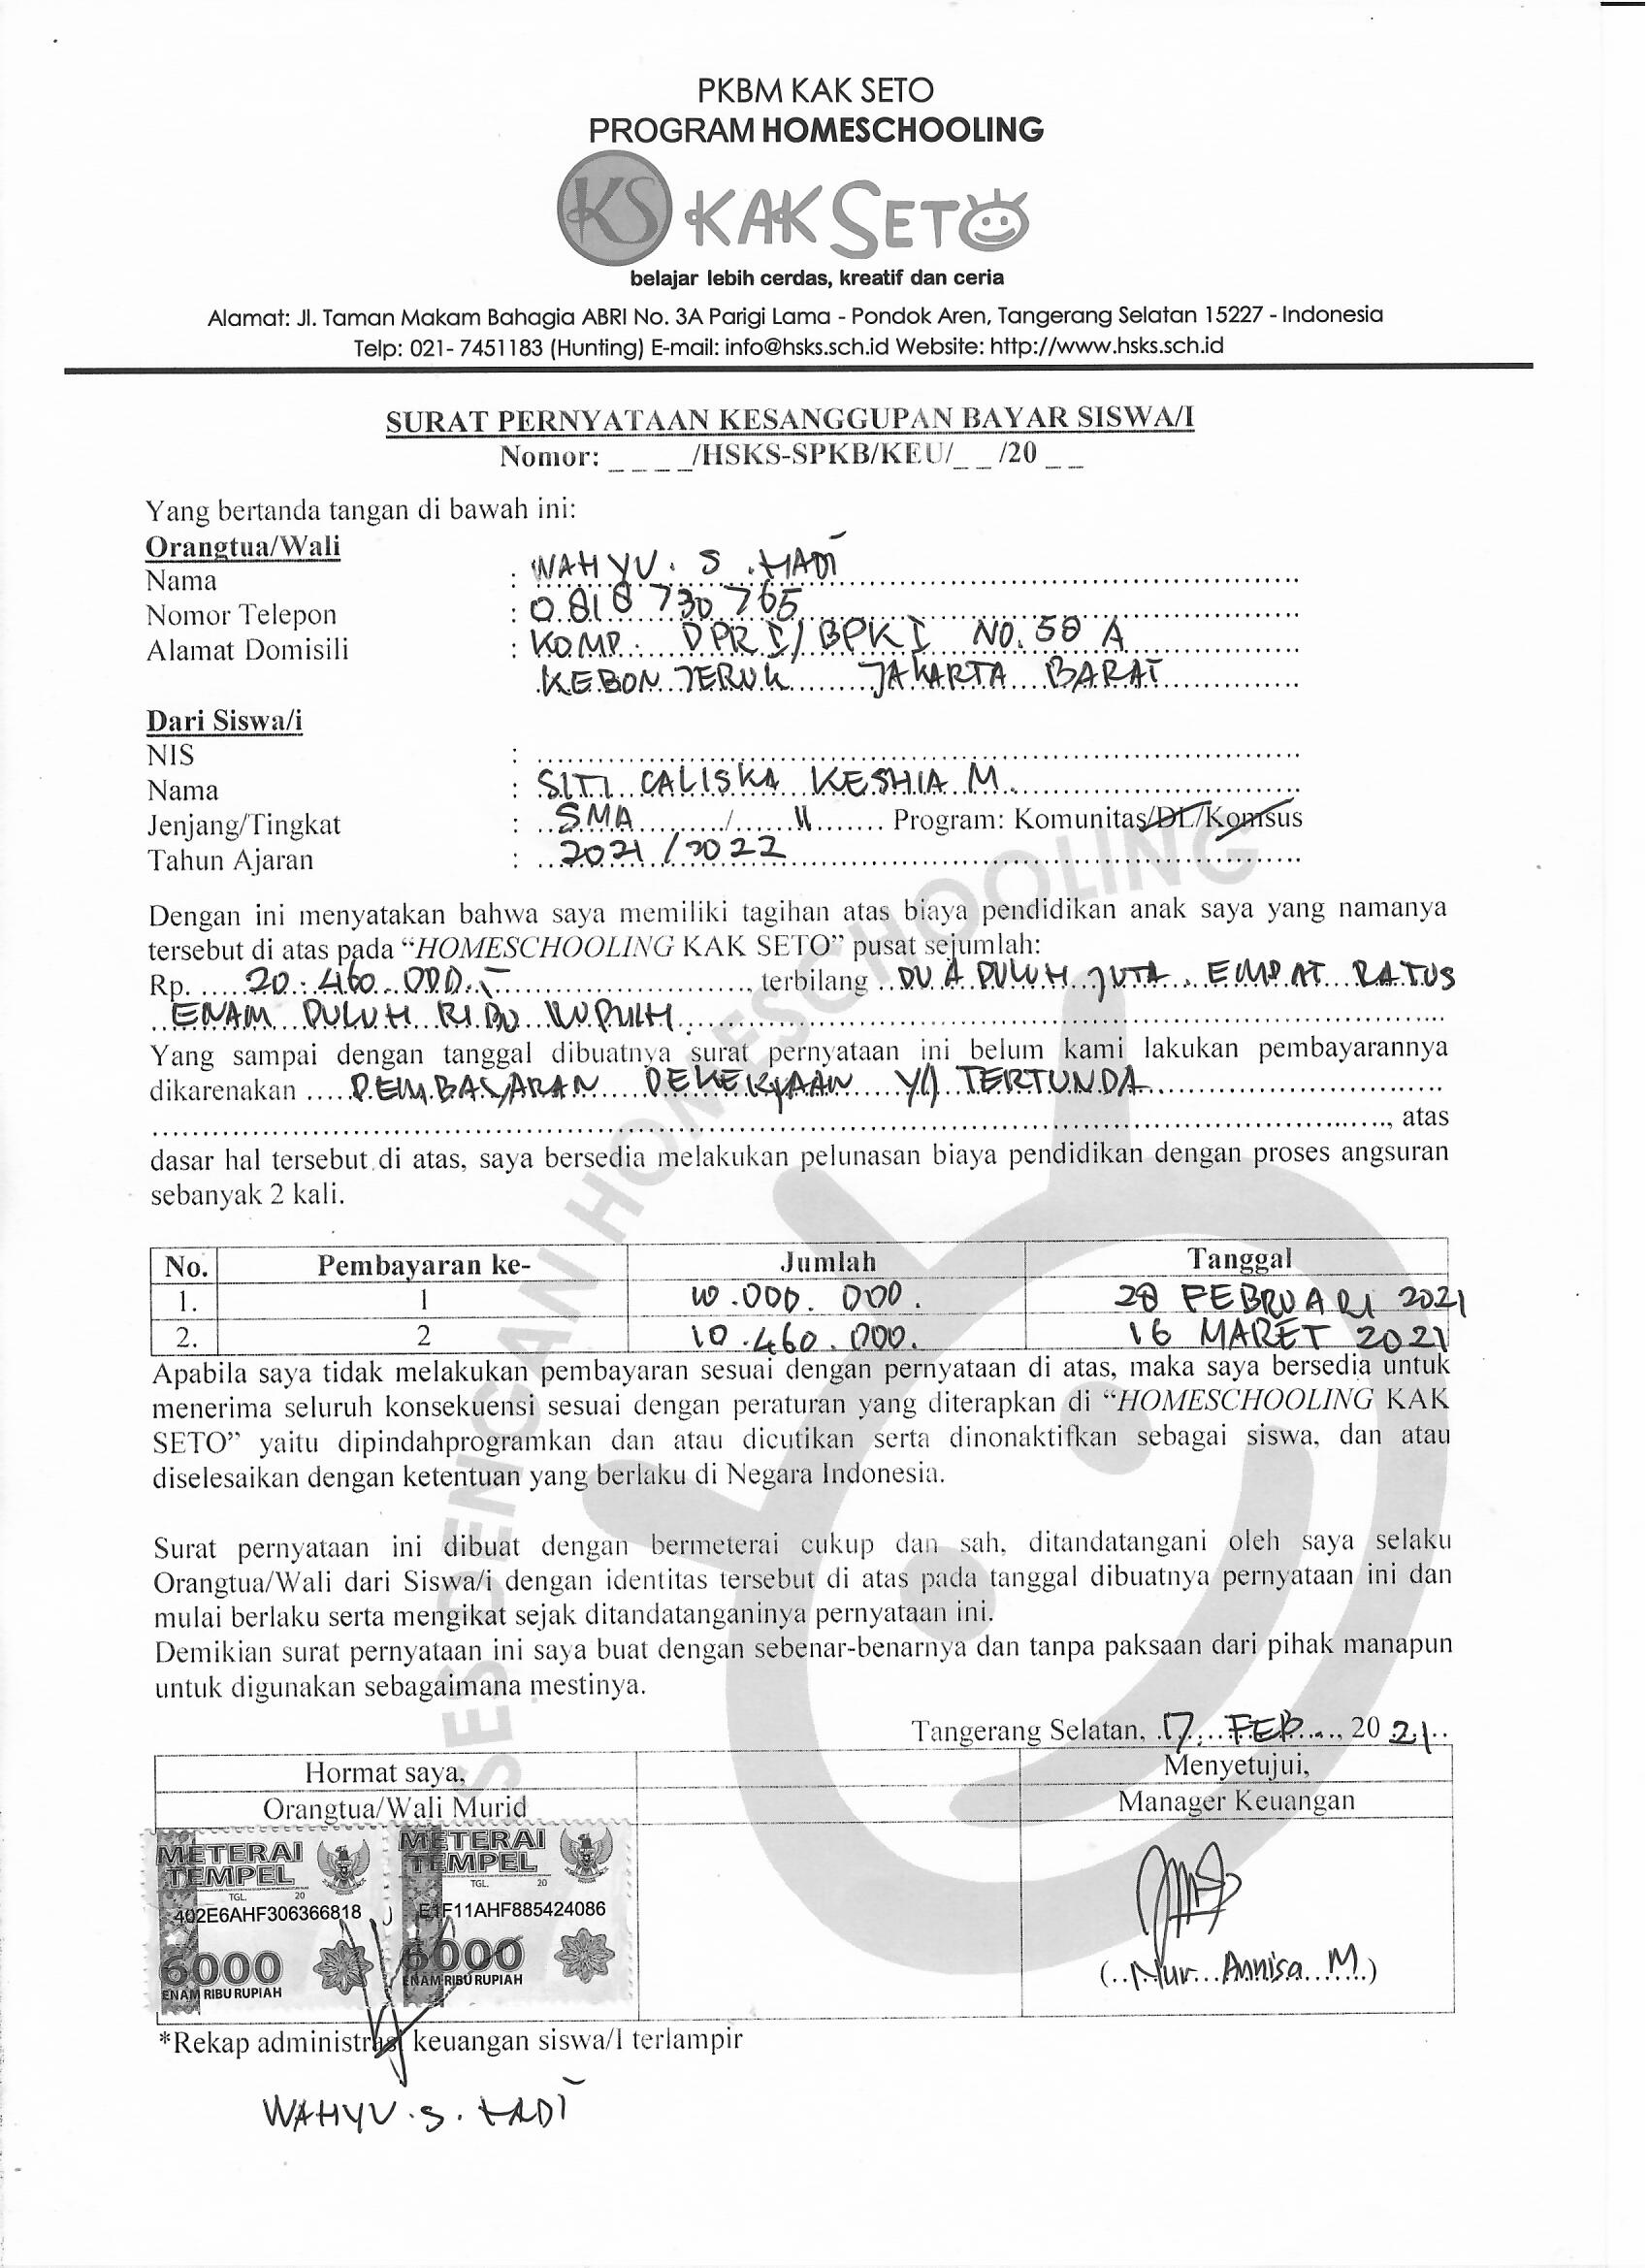 PKBM KAK SETO
PROGRAM HOMESCHOOLING
KS KAK SETO
belajar lebih cerdas, kreatif dan ceria
Alamat: Jl. Taman Makam Bahagia ABRI No. 3A Parigi Lama - Pondok Aren, Tangerang Selatan 15227 - Indonesia
Telp: 021- 7451183 (Hunting) E-mail: info@hsks.sch.id Website: http://www.hsks.sch.id
SURAT PERNYATAAN KESANGGUPAN BAYAR SISWA/I
Nomor: _ _ _ _/HSKS-SPKB/KEU/_ _ /20 _ _
Yang bertanda tangan di bawah ini:
Orangtua/Wali
Nama : WAHYU. S. HADI
Nomor Telepon : 0818 730 765
Alamat Domisili : KOMP. DPR I/BPK I NO. 58 A
KEBON JERUK JAKARTA BARAT
Dari Siswa/i
NIS :
Nama : SITI CALISKA KESHIA M
Jenjang/Tingkat : SMA / 11 Program: Komunitas/DL/Komsus
Tahun Ajaran : 2021/2022
Dengan ini menyatakan bahwa saya memiliki tagihan atas biaya pendidikan anak saya yang namanya
tersebut di atas pada “HOMESCHOOLING KAK SETO” pusat sejumlah:
Rp. 20.460.000.- , terbilang DUA PULUH JUTA EMPAT RATUS
ENAM PULUH RIBU RUPIAH
Yang sampai dengan tanggal dibuatnya surat pernyataan ini belum kami lakukan pembayarannya
dikarenakan PEMBAYARAN PEKERJAAN YG TERTUNDA
, atas
dasar hal tersebut di atas, saya bersedia melakukan pelunasan biaya pendidikan dengan proses angsuran
sebanyak 2 kali.
No. Pembayaran ke- Jumlah Tanggal
1. 1 10.000.000. 28 FEBRUARI 2021
2. 2 10.460.000. 16 MARET 2021
Apabila saya tidak melakukan pembayaran sesuai dengan pernyataan di atas, maka saya bersedia untuk
menerima seluruh konsekuensi sesuai dengan peraturan yang diterapkan di “HOMESCHOOLING KAK
SETO” yaitu dipindahprogramkan dan atau dicutikan serta dinonaktifkan sebagai siswa, dan atau
diselesaikan dengan ketentuan yang berlaku di Negara Indonesia.
Surat pernyataan ini dibuat dengan bermeterai cukup dan sah, ditandatangani oleh saya selaku
Orangtua/Wali dari Siswa/i dengan identitas tersebut di atas pada tanggal dibuatnya pernyataan ini dan
mulai berlaku serta mengikat sejak ditandatanganinya pernyataan ini.
Demikian surat pernyataan ini saya buat dengan sebenar-benarnya dan tanpa paksaan dari pihak manapun
untuk digunakan sebagaimana mestinya.
Tangerang Selatan, 17 FEB, 2021
Hormat saya, Menyetujui,
Orangtua/Wali Murid Manager Keuangan
METERAI TEMPEL METERAI TEMPEL
TGL. 20 TGL. 20
402E6AHF306366818 E1F11AHF885424086
6000 6000
ENAM RIBU RUPIAH ENAM RIBU RUPIAH
(Nur Annisa M)
*Rekap administrasi keuangan siswa/I terlampir
WAHYU. S. HADI
SES DENGAN HOMESCHOOLING